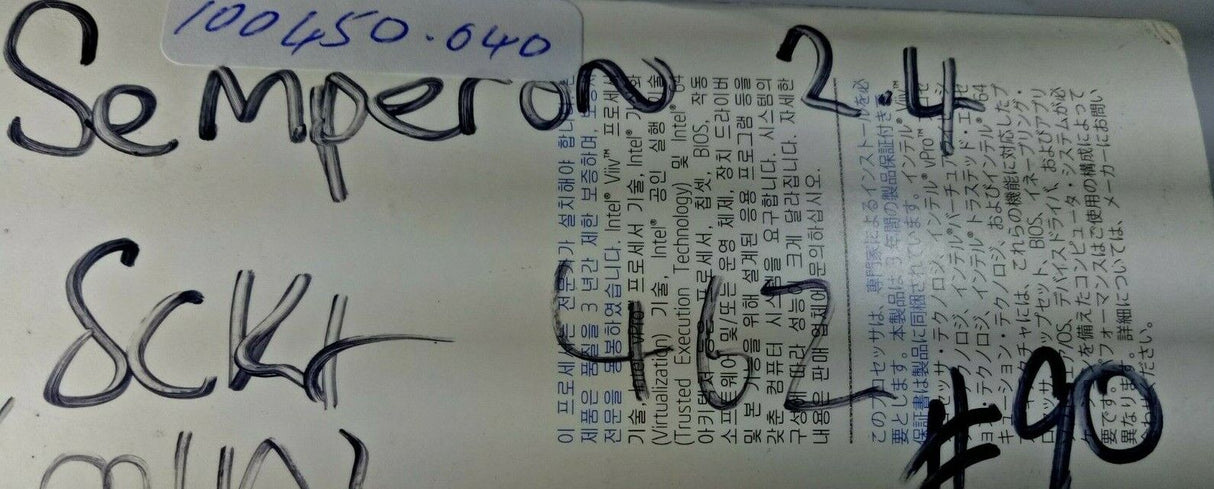 100450.040
Semperon 2.4
SCKt 462
#90
이 프로세서는 전문가가 설치해야 합니
제품은 품질을 3 년간 제한 보증하며,
전문을 동봉하였습니다. Intel® Viiv™ 프로세서
기술, Intel® vPro™ 프로세서 기술, Intel®
(Virtualization) 기술, Intel® 공인 실행 기술
(Trusted Execution Technology) 및 Intel® 64
아키텍처 프로세서, 칩셋, BIOS, 작동
소프트웨어 및/또는 운영 체제, 장치 드라이버
및 본 기능을 위해 설계된 응용 프로그램 등을
갖춘 컴퓨터 시스템을 요구합니다. 시스템의
구성에 따라 성능이 크게 달라집니다. 자세한
내용은 판매 업체에 문의하십시오.
このプロセッサは、専門家によるインストールを必
要とします。本製品は3年間の製品保証付き
保証書は製品に同梱されています。インテル® Viiv™
プロセッサ・テクノロジ、インテル® vPro™
テクノロジ、インテル® バーチュア
テクノロジ、インテル® トラステッド・エ
キューション・テクノロジ、およびインテル® 64
には、これらの機能に対応したプ
チップセット、BIOS、イネーブリング・
デバイスドライバ、およびアプリ
を備えたコンピュータ・システムが必
要です。パフォーマンスはご使用の構成によって
異なります。詳細については、メーカーにお問い
合わせください。